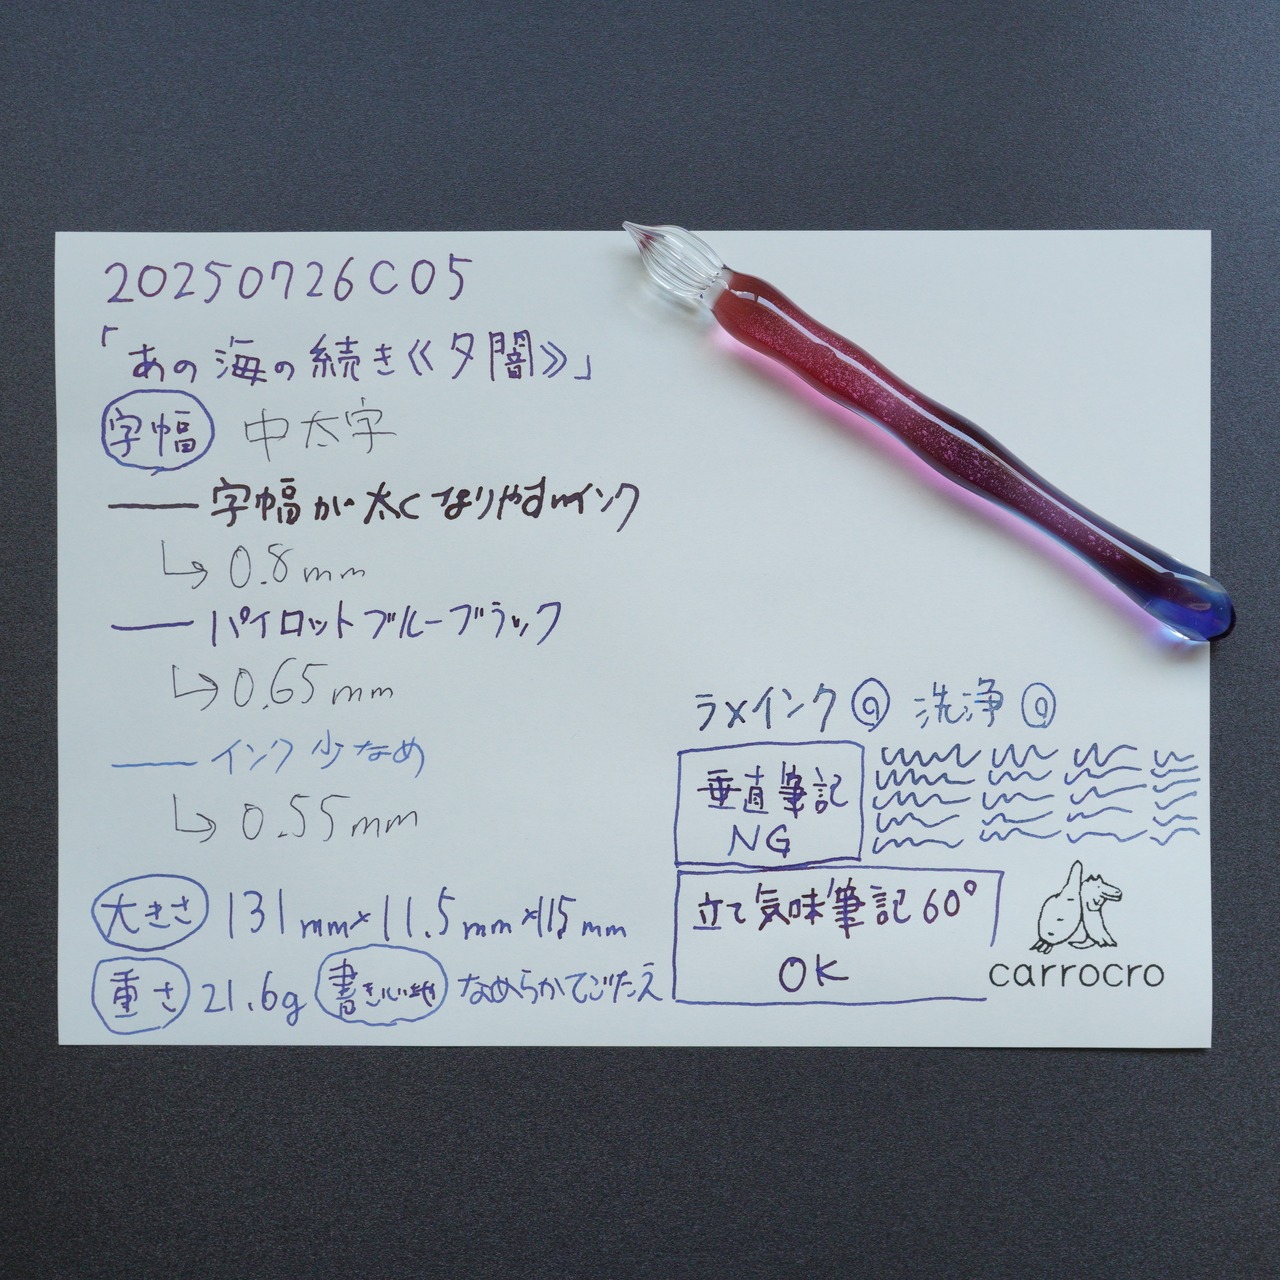 20250726C05
「あの海の続き《夕闇》」
字幅 中太字
字幅が太くなりやすいインク
0.8mm
パイロットブルーブラック
0.65mm
インク少なめ
0.55mm
大きさ 131mm×11.5mm×11.5mm
重さ 21.6g 書きいい味 なめらかてごたえ
ラメインク◎ 洗浄◎
垂直筆記
NG
立て気味筆記60°
OK
carrocro